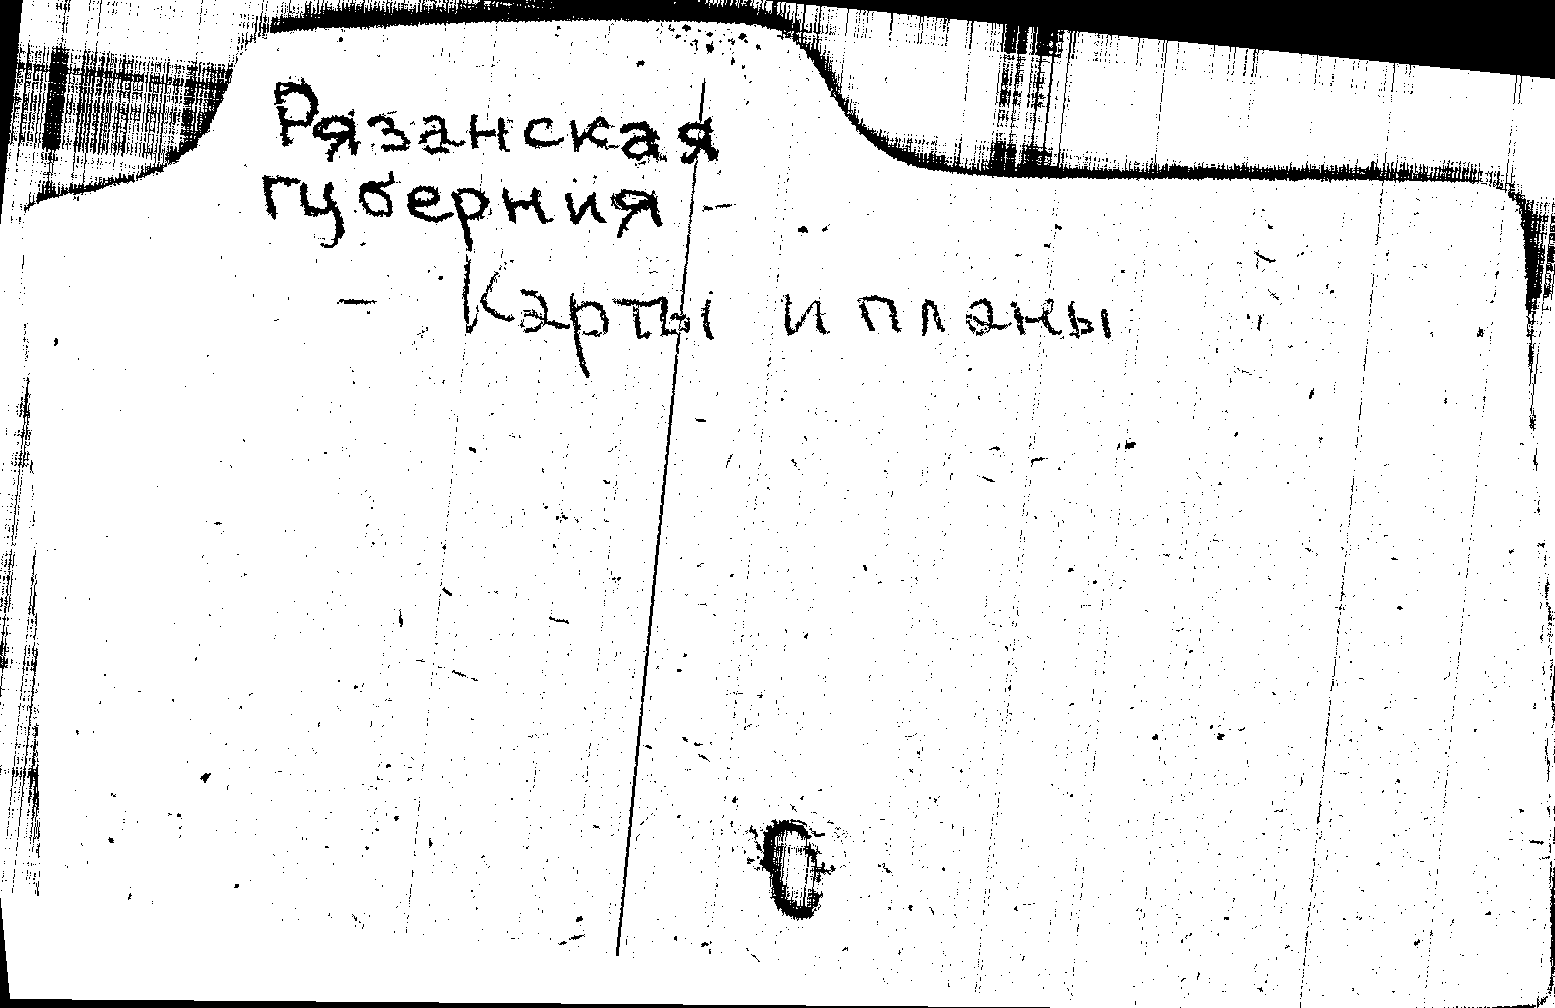 Рязанская
губерния –
– Карты и планы